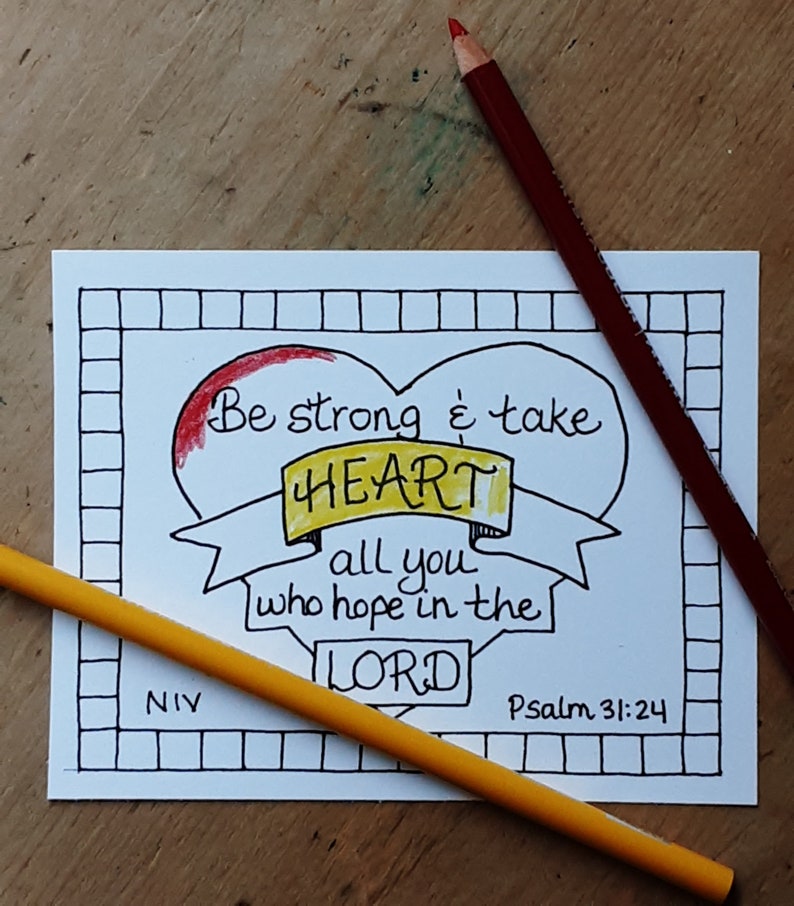 Be strong & take
HEART
all you
who hope in the
LORD
NIV
Psalm 31:24